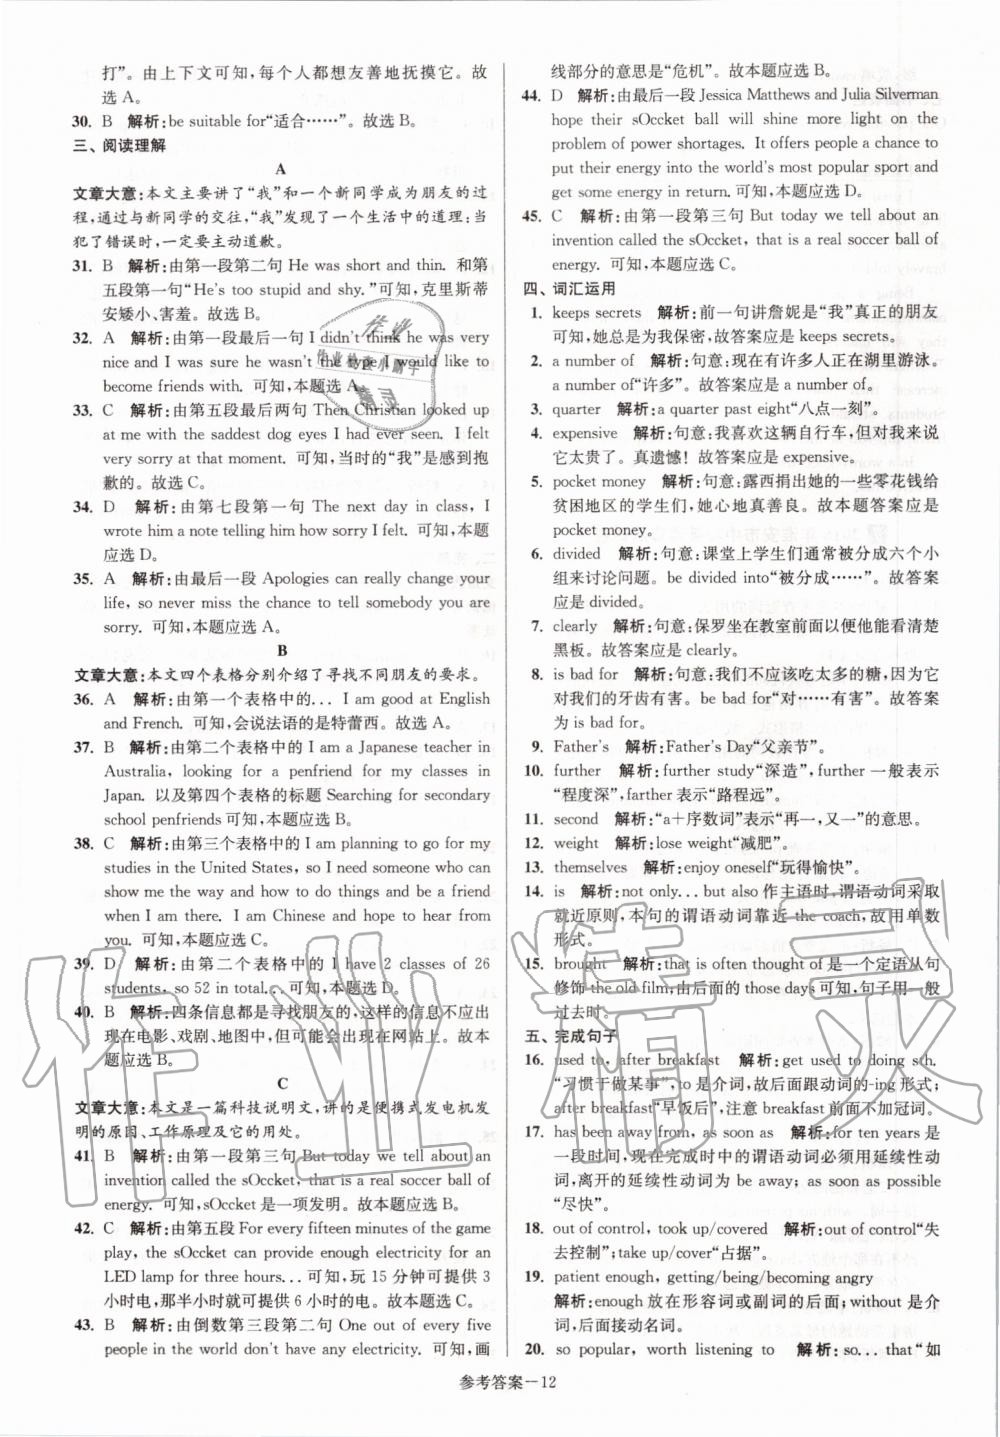 打”。由上下文可知,每个人都想友善地抚摸它。故
选A。
30. B 解析:be suitable for“适合……”。故选B。
三、阅读理解
A
文章大意:本文主要讲了“我”和一个新同学成为朋友的过
程,通过与新同学的交往,“我”发现了一个生活中的道理:当
犯了错误时,一定要主动道歉。
31. B 解析:由第一段第二句 He was short and thin. 和第
五段第一句“He's too stupid and shy.”可知,克里斯蒂
安矮小、害羞。故选B。
32. A 解析:由第一段最后一句 I didn't think he was very
nice and I was sure he wasn't the type I would like to
become friends with. 可知,本题选A。
33. C 解析:由第五段最后两句 Then Christian looked up
at me with the saddest dog eyes I had ever seen. I felt
very sorry at that moment. 可知,当时的“我”是感到抱
歉的。故选C。
34. D 解析:由第七段第一句 The next day in class, I
wrote him a note telling him how sorry I felt. 可知,本题
应选D。
35. A 解析:由最后一段 Apologies can really change your
life, so never miss the chance to tell somebody you are
sorry. 可知,本题应选A。
B
文章大意:本文四个表格分别介绍了寻找不同朋友的要求。
36. A 解析:由第一个表格中的... I am good at English
and French. 可知,会说法语的是特蕾西。故选A。
37. B 解析:由第二个表格中的 I am a Japanese teacher in
Australia, looking for a penfriend for my classes in
Japan. 以及第四个表格的标题 Searching for secondary
school penfriends 可知,本题应选B。
38. C 解析:由第三个表格中的 I am planning to go for my
studies in the United States, so I need someone who can
show me the way and how to do things and be a friend
when I am there. I am Chinese and hope to hear from
you. 可知,本题应选C。
39. D 解析:由第二个表格中的 I have 2 classes of 26
students, so 52 in total... 可知,本题选D。
40. B 解析:四条信息都是寻找朋友的,这样的信息不应出
现在电影、戏剧、地图中,但有可能出现在网站上。故本
题应选B。
C
文章大意:本文是一篇科技说明文,讲的是便携式发电机发
明的原因、工作原理及它的用处。
41. B 解析:由第一段第三句 But today we tell about an
invention called the sOccket, that is a real soccer ball of
energy. 可知, sOccket是一项发明。故本题应选B。
42. C 解析:由第五段 For every fifteen minutes of the game
play, the sOccket can provide enough electricity for an
LED lamp for three hours... 可知,玩15分钟可提供3
小时电,那半小时就可提供6小时的电。故本题选C。
43. B 解析:由倒数第三段第二句 One out of every five
people in the world don't have any electricity. 可知,画
线部分的意思是“危机”。故本题应选B。
44. D 解析:由最后一段 Jessica Matthews and Julia Silverman
hope their sOccket ball will shine more light on the
problem of power shortages. It offers people a chance to
put their energy into the world's most popular sport and
get some energy in return. 可知,本题应选D。
45. C 解析:由第一段第三句 But today we tell about an
invention called the sOccket, that is a real soccer ball of
energy. 可知,本题应选C。
四、词汇运用
1. keeps secrets 解析:前一句讲詹妮是“我”真正的朋友
可知,她总是为我保密,故答案应是 keeps secrets.
2. a number of 解析:句意:现在有许多人正在湖里游泳。
a number of“许多”。故答案应是 a number of。
3. quarter 解析:a quarter past eight“八点一刻”。
4. expensive 解析:句意:我喜欢这辆自行车,但对我来说
它太贵了。真遗憾!故答案应是 expensive。
5. pocket money 解析:句意:露西捐出她的一些零花钱给
贫困地区的学生们,她心地真善良。故本题答案应是
pocket money.
6. divided 解析:句意:课堂上学生们通常被分成六个小
组来讨论问题。be divided into“被分成……”。故答案
应是 divided。
7. clearly 解析:句意:保罗坐在教室前面以便他能看清楚
黑板。故答案应是 clearly。
8. is bad for 解析:句意:我们不应该吃太多的糖,因为它
对我们的牙齿有害。be bad for“对……有害”。故答案
为 is bad for.
9. Father's 解析:Father's Day“父亲节”。
10. further 解析:further study“深造”, further 一般表示
“程度深”,farther 表示“路程远”。
11. second 解析:“a+序数词”表示“再一,又一”的意思。
12. weight 解析:lose weight“减肥”。
13. themselves 解析:enjoy oneself“玩得愉快”。
14. is 解析:not only... but also 作主语时,谓语动词采取
就近原则,本句的谓语动词靠近 the coach,故用单数
形式。
15. brought 解析:that is often thought of 是一个定语从句
修饰 the old film,由后面的 those days 可知,句子应用一般
过去时。
五、完成句子
16. used to, after breakfast 解析:get used to doing sth.
“习惯于做某事”,to 是介词,故后面跟动词的-ing 形式;
after breakfast“早饭后”,注意 breakfast 前面不加冠词。
17. has been away from, as soon as 解析:for ten years 是
一段时间,现在完成时中的谓语动词必须用延续性动
词,离开的延续性动词为 be away; as soon as possible
“尽快”。
18. out of control, took up/covered 解析:out of control“失
去控制”;take up/cover“占据”。
19. patient enough, getting/being/becoming angry
解析:enough 放在形容词或副词的后面;without 是介
词,后面接动名词。
20. so popular, worth listening to 解析:so... that“如
参考答案—12
作业精灵